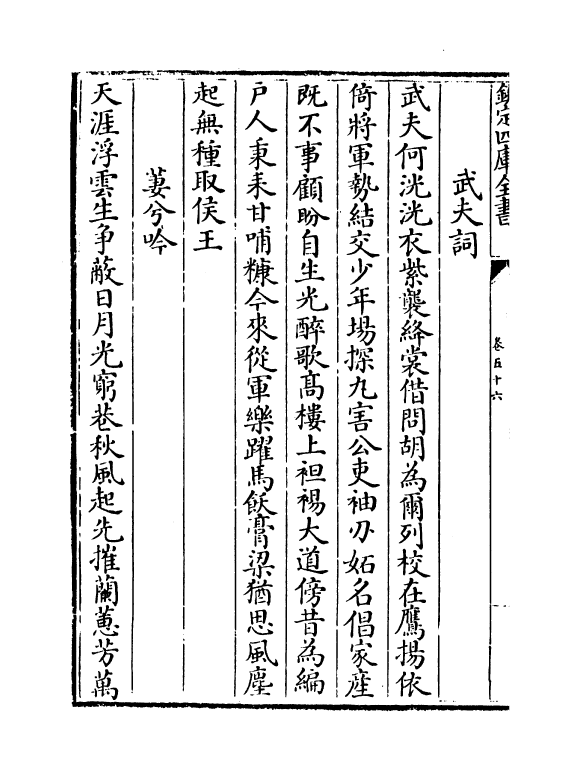 欽定四庫全書
卷五十六
武夫詞
武夫何洸洸衣紫襲絳裳借問胡為爾列校在鷹揚依
倚將軍勢結交少年場探丸害公吏袖刃妬名倡家產
既不事顧盼自生光醉歌髙樓上袒裼大道傍昔為編
户人秉耒甘哺糠今來從軍樂躍馬飫膏粱猶思風塵
起無種取侯王
萋兮吟
天涯浮雲生爭蔽日月光窮巷秋風起先摧蘭蕙芳萬